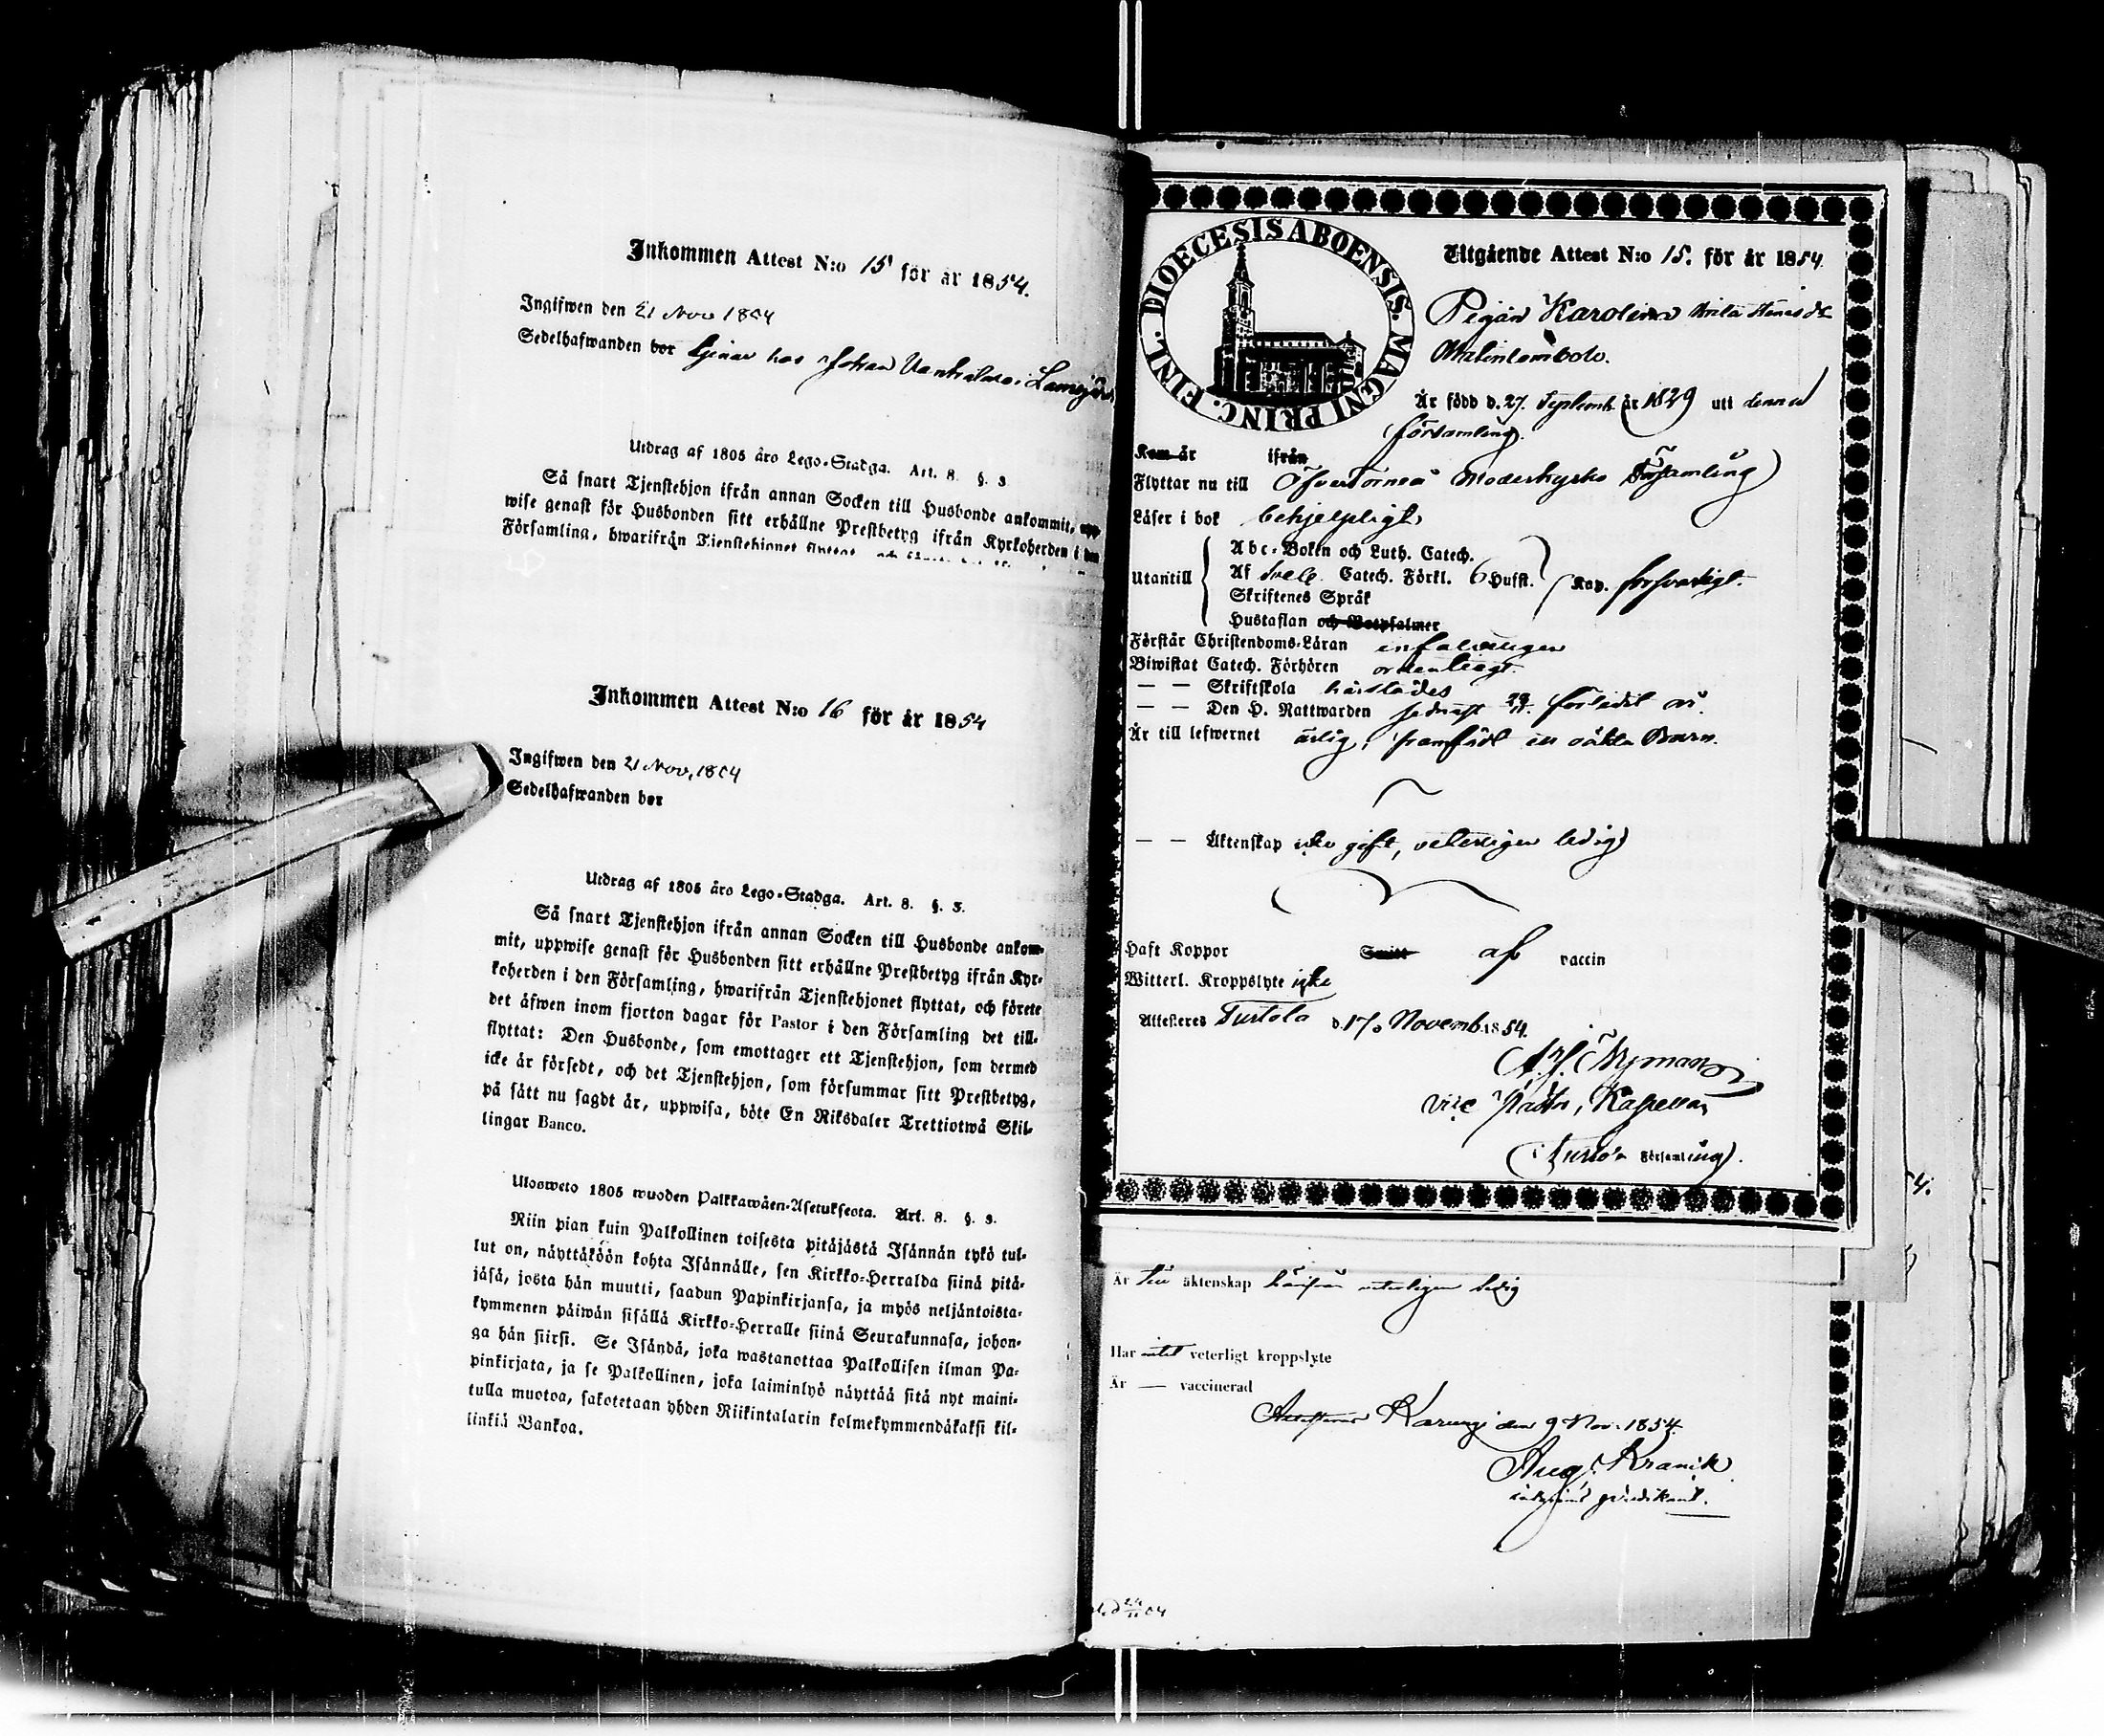 Inkommen Attest N:o 15 för år 1854.
Ingifwen den 21 Nov 1854
Sedelhafwanden bor tjenar hos Johan
Utdrag af 1805 års Lego-Stadga. Art. 8. §. 3.
Så snart Tjenstehjon ifrån annan Socken till Husbonde ankommit, upp-
wise genast för Husbonden sitt erhållne Prestbetyg ifrån Kyrkoherden i den
Församling, hwarifrån Tjenstehjonet flyttat, och
Inkommen Attest N:o 16 för år 1854
Ingifwen den 21 Nov, 1854
Sedelhafwanden bor
Utdrag af 1805 års Lego-Stadga. Art. 8. §. 3.
Så snart Tjenstehjon ifrån annan Socken till Husbonde ankom-
mit, uppwise genast för Husbonden sitt erhållne Prestbetyg ifrån Kyr-
koherden i den Församling, hwarifrån Tjenstehjonet flyttat, och förete
det äfwen inom fjorton dagar för Pastor i den Församling det till-
flyttat: Den Husbonde, som emottager ett Tjenstehjon, som dermed
icke är försedt, och det Tjenstehjon, som försummar sitt Prestbetyg,
på sätt nu sagdt är, uppwisa, böte En Riksdaler Trettiotwå Skil-
lingar Banco.
Ulosweto 1805 wuoden Palkkawäen-Asetuksesta. Art. 8. §. 3.
Niin pian kuin Palkollinen toisesta pitäjästä Isännän tykö tul-
lut on, näyttäköön kohta Isännälle, sen Kirkko-Herralda siinä pitä-
jäsä, josta hän muutti, saadun Papinkirjansa, ja myös neljäntoista-
kymmenen päiwän sisällä Kirkko-Herralle siinä Seurakunnasa, johon-
ga hän siirsi. Se Isändä, joka wastanottaa Palkollisen ilman Pa-
pinkirjata, ja se Palkollinen, joka laiminlyö näyttää sitä nyt maini-
tulla muotoa, sakotetaan yhden Riikintalarin kolmekymmendäkaksi kil-
linkiä Bankoa.
FINL. DIOECESIS ABOENSIS. MAGNI PRINC.
Utgående Attest N:o 15. för år 1854.
Pigan Karolina Brita
Är född d. 27. Septemb. år 1829 uti denna
församling.
Kom år ifrån
Flyttar nu till Öfvertorneå Moderkyrko Församling
Läser i bok behjelpligt,
Abc-Boken och Luth. Catech.
Utantill Af Sveb. Catech. Förkl. 6 Hufst. Kap. försvarligt.
Skriftenes Språk
Hustaflan och Botpsalmer
Förstår Christendoms-Läran enfaldigen
Biwistat Catech. Förhören ordentligt.
— — Skriftskola härstädes
— — Den H. Nattwarden sednast förledit år.
Är till lefwernet ärlig, framfödt en oäkta Barn.
— — Äktenskap icke gift, veterligen ledig
Haft Koppor Smitt af vaccin
Witterl. Kroppslyte icke
Attesteres Turtola d. 17. Novemb. 1854.
Nyman
vice Pastor, Kapellan
i Turtola Församling.
Är till äktenskap härifrån veterligen ledig
Har intet veterligt kroppslyte
Är — vaccinerad
Attesteras Karungi den 9 Nov. 1854.
Aug. Kranik
predikant.